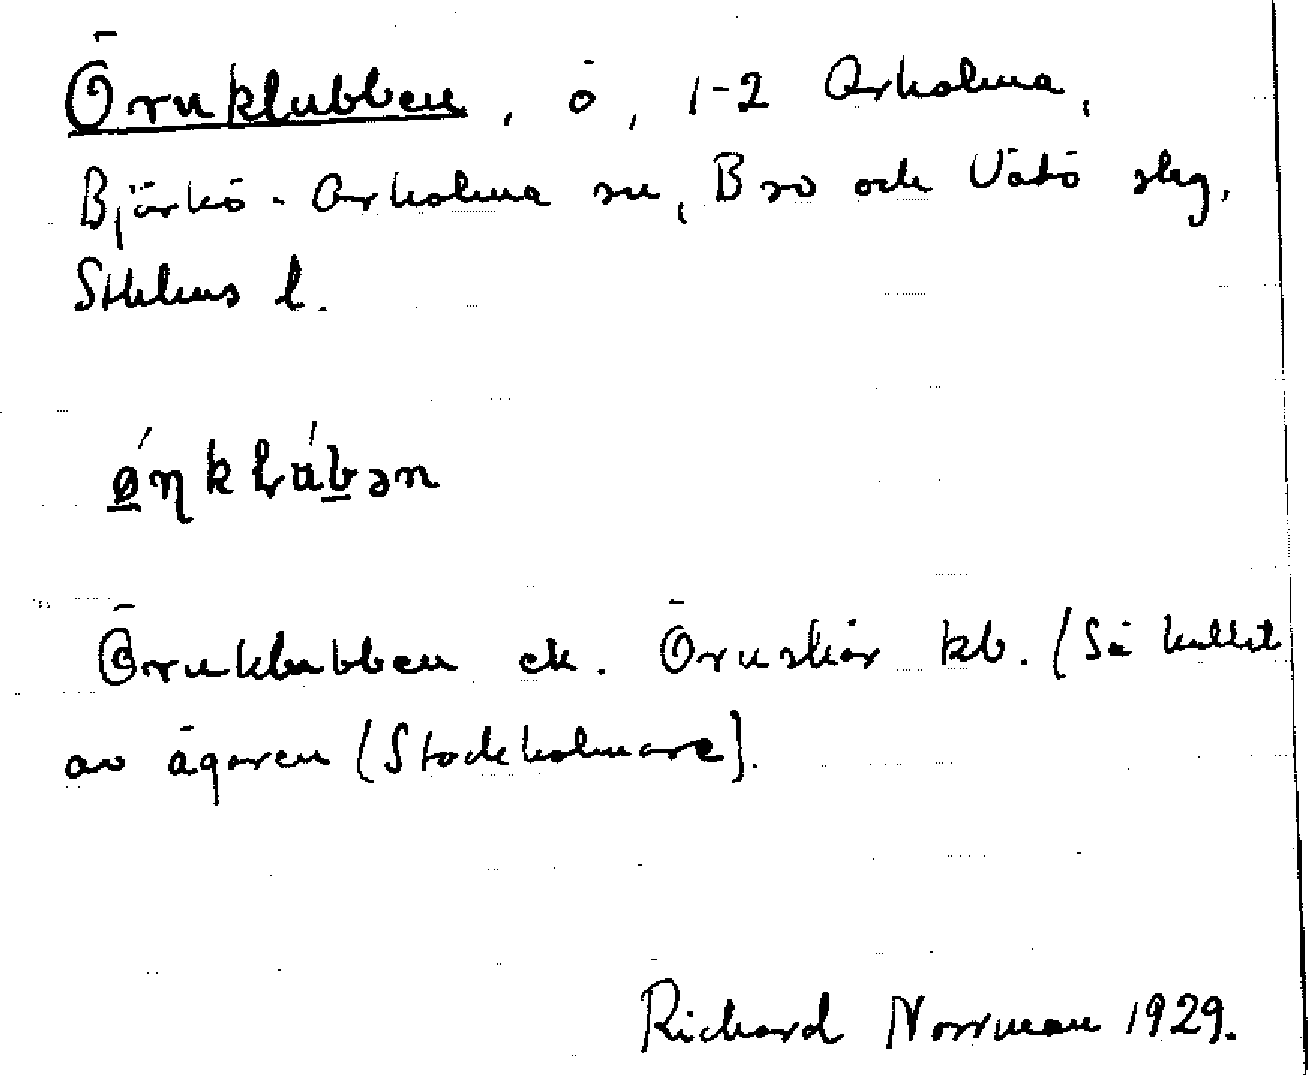 Örnklubben, ö, 1-2 Arholma,
Björkö-Arholma sn, Bro och Vätö slg,
Sthlms l.
Örnklubben ek. Örnskär kb. (Så kallat
av ägaren (Stockholmare).
Richard Norrman 1929.